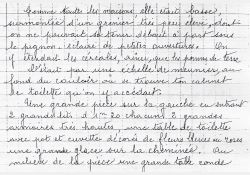 Comme toute les maisons elle était basse,
surmontée d'un grenier très peu élevé, dont
on ne pouvait se tenir debout à part sous
le pignon, éclairé de petites ouvertures. On
y étendait les cercales, ainsi que les pommes de terre
C'était par une échelle de meunier, au
fond du couloir, ou se trouve ton cabinet
de toilette qu'on y accédait.
Une grande pièce sur la gauche en entrant
2 grands lits d 1m 20 chacun, 2 grandes
armoires très hautes, une table de toilette
avec pot et cuvette décorés de fleurs bleues ou roses
une grande glace sur la cheminée. Au
milieu de la pièce une grande table ronde